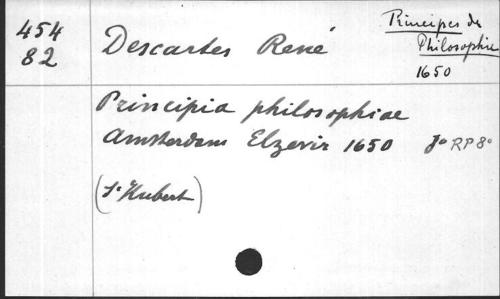 454
82
Descartes René
Principes de
Philosophie
1650
Principia philosophiae
Amsterdam Elzevir 1650 8° RP8°
(St Hubert)